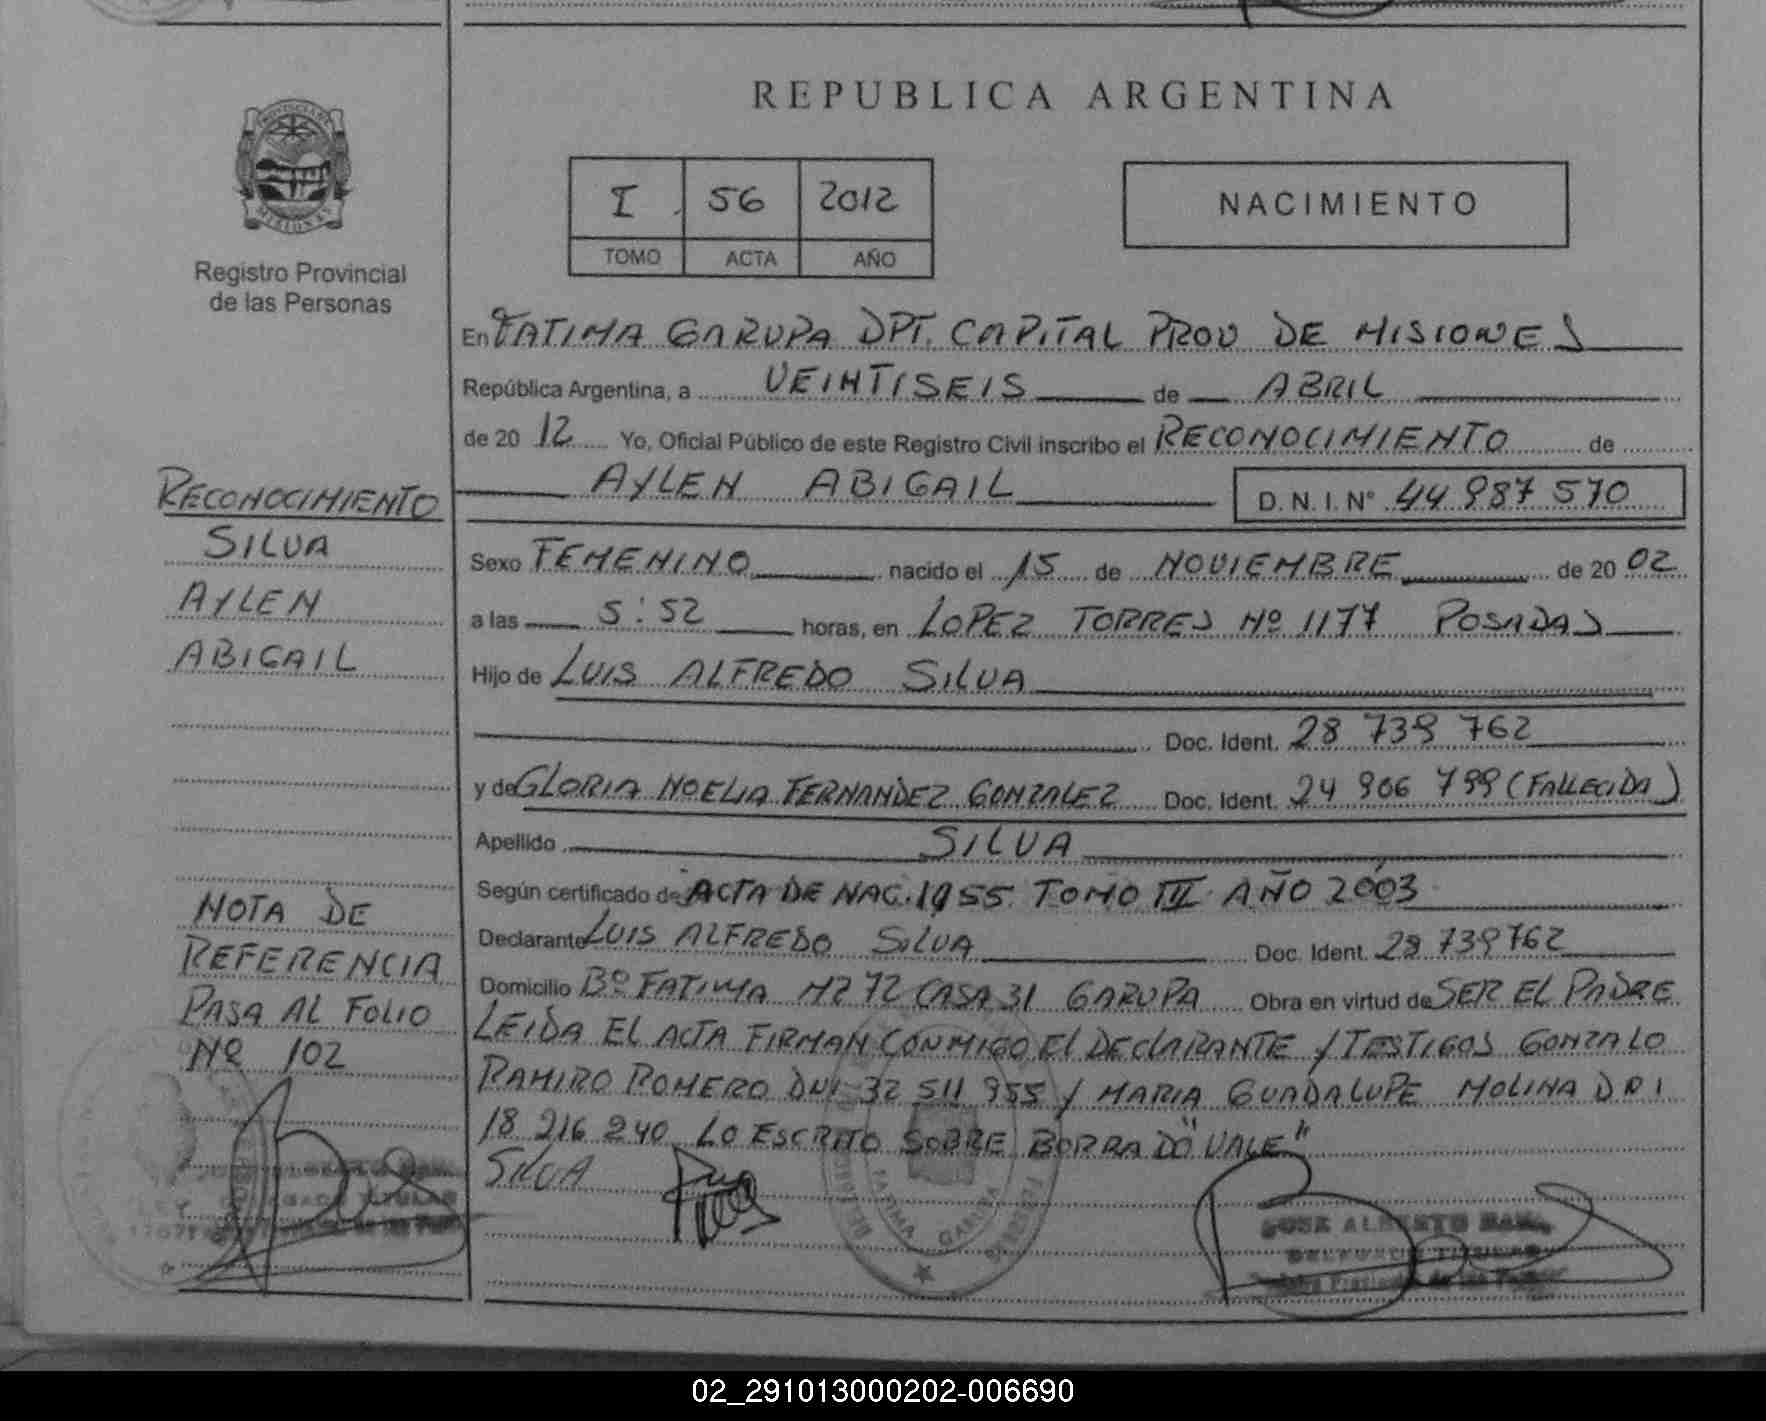 REPUBLICA ARGENTINA
PROVINCIA DE
MISIONES
Registro Provincial
de las Personas
I 56 2012
TOMO ACTA AÑO
NACIMIENTO
En FATIMA GARUPA DPT. CAPITAL PROV DE MISIONES
República Argentina, a VEINTISEIS de ABRIL
de 20 12 Yo, Oficial Público de este Registro Civil inscribo el RECONOCIMIENTO de
AYLEN ABIGAIL D. N. I. N° 44 987 570
Sexo FEMENINO nacido el 15 de NOVIEMBRE de 20 02
a las 5:52 horas, en LOPEZ TORRES Nº 1177 POSADAS
Hijo de LUIS ALFREDO SILVA
Doc. Ident. 28 739 762
y de GLORIA NOELIA FERNANDEZ GONZALEZ Doc. Ident. 24 906 799 (FALLECIDA)
Apellido SILVA
Según certificado de ACTA DE NAC. 1955 TOMO III AÑO 2003
Declarante LUIS ALFREDO SILVA Doc. Ident. 28 739 762
Domicilio Bº FATIMA MZ 72 CASA 31 GARUPA Obra en virtud de SER EL PADRE
LEIDA EL ACTA FIRMAN CONMIGO El DECLARANTE Y TESTIGOS GONZALO
RAMIRO ROMERO DNI 32 511 955 Y MARIA GUADALUPE MOLINA DNI
18 216 240 LO ESCRITO SOBRE BORRADO "VALE"
SILVA
RECONOCIMIENTO
SILVA
AYLEN
ABIGAIL
NOTA DE
REFERENCIA
PASA AL FOLIO
Nº 102
FATIMA GARUPA
JOSE ALBERTO
DELEGADO TITULAR
02_291013000202-006690